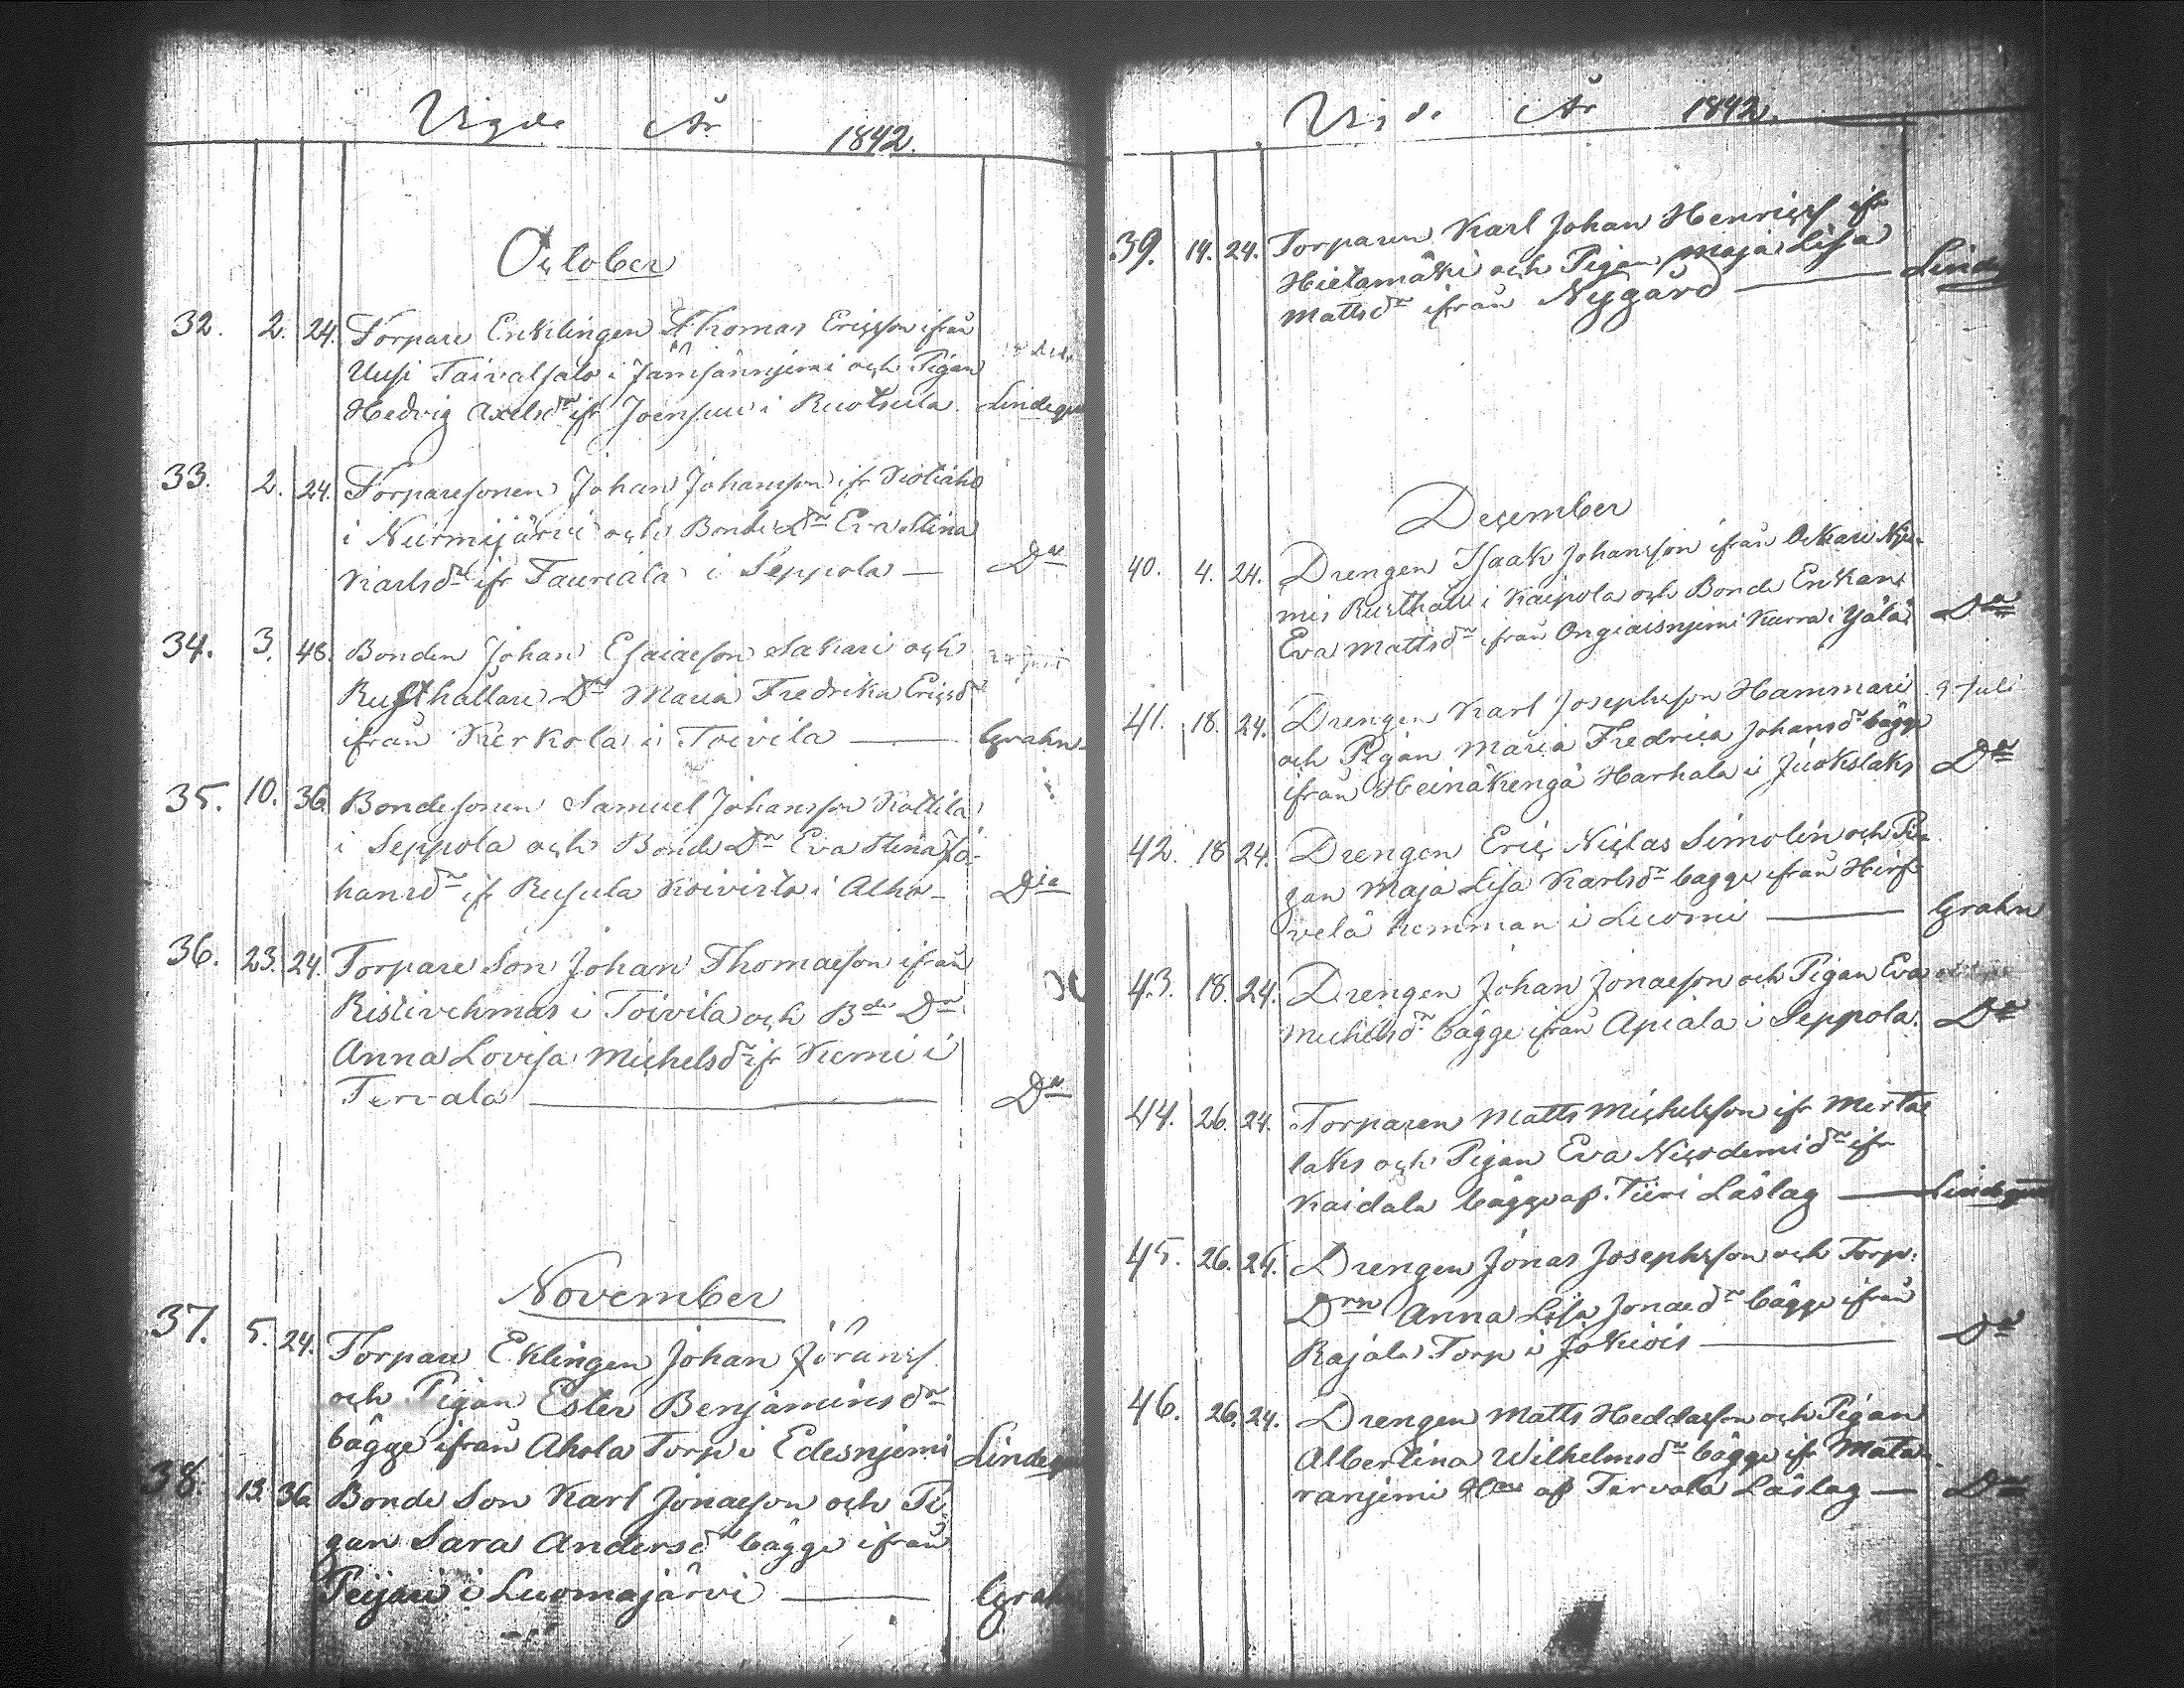 Vigde År 1842.
October
32. 2. 24. Torpare Enklingen Thomas Ericsson ifrån
Uusi Taivalsalo i Jämsänniemi och Pigan
Hedvig Axelsdr ifr Joensuu i Ruotsula. Lindeqv
33. 2. 24. Torparesonen Johan Johansson ifr
i Nurmijärvi och Bonde Dr Eva Stina
Karlsdr ifr Tauriala i Seppola — Do
34. 3. 48. Bonden Johan Esaiasson Sakari och
Rusthållare Dr Maria Fredrika Ericsdr
ifrån Kerkola i Toivila — Grahn
35. 10. 36 Bondesonen Samuel Johansson Kottila
i Seppola och Bonde Dr Eva Stina Jo-
hansdr ifr Rusula Koivisto i Alho — Do
36. 23. 24. Torpare Son Johan Thomasson ifrån
Ristivehmas i Toivila och Bde Dr
Anna Lovisa Michelsdr ifr Kemi i
Tervala — Do
November
37. 5. 24. Torpare Eklingen Johan Jörans
och Pigan Ester Benjaminsdr
bägge ifrån Ahola Torp i Edesnjemi Lindeqv
38. 13. 36 Bonde Son Karl Jonasson och Pi-
gan Sara Andersdr bägge ifrån
Peijari i Luomajärvi — Grahn
Vigde År 1842.
39. 14. 24. Torparen Karl Johan Henricss ifr
Hietamäki och Pigan Maja Lisa
Mattsdr ifrån Nygård — Linde
December
40. 4. 24. Drengen Isaak Johansson ifrån
mis Rusthåll i Kaipola och Bonde Enkan
Eva Mattsdr ifrån Ongiaisnjemi Karra i Jälä Do
41. 18. 24. Drengen Karl Josephsson Hammari 9 Juli
och Pigan Maria Fredrica Johansdr bägge
ifrån Heinäkengä Harhala i Juokslaks Do
42. 18 24. Drengen Eric Niclas Simolin och Pi-
gan Maja Lisa Karlsdr bägge ifrån Hirs-
velä hemman i Luomi — Grahn
43. 18. 24. Drengen Johan Jonasson och Pigan Eva
Michelsdr bägge ifrån Apiala i Seppola. Do
44. 26. 24. Torparen Matts Michelsson ifr Merta
laks och Pigan Eva Nicodemidr ifr
Kaidala bägge af Tiiri Läslag — Lindeqv
45. 26. 24. Drengen Jonas Josephsson och Torp.
Drn Anna Lisa Jonaedr bägge ifrån
Rajala Torp i Jokiois — Do
46. 26. 24. Drengen Matts Heddasson och Pigan
Albertina Wilhelmsdr bägge ifr Mata-
ranjemi af Tervala Läslag — Do